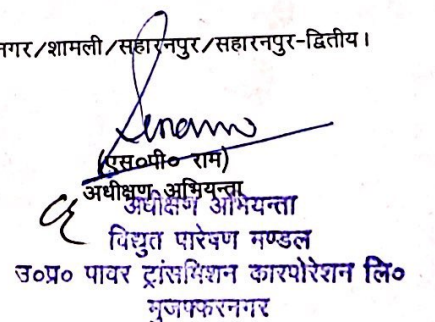 नगर/शामली/सहारनपुर/सहारनपुर-द्वितीय।
(एस०पी० राम)
अधीक्षण अभियन्ता
अधीक्षण अभियन्ता
विद्युत पारेषण मण्डल
उ०प्र० पावर ट्रांसमिशन कारपोरेशन लि०
मुजफ्फरनगर